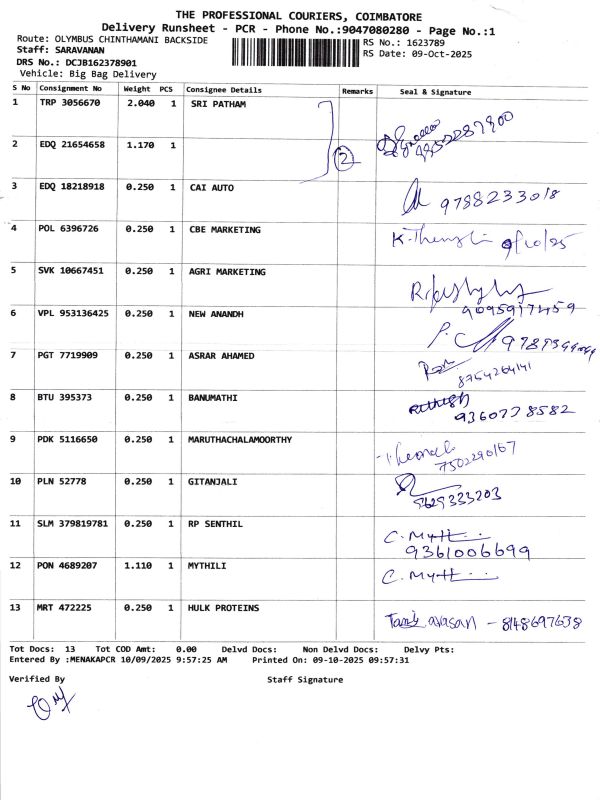 THE PROFESSIONAL COURIERS, COIMBATORE
Delivery Runsheet - PCR - Phone No.:9047080280 - Page No.:1
Route: OLYMBUS CHINTHAMANI BACKSIDE
RS No.: 1623789
Staff: SARAVANAN
RS Date: 09-Oct-2025
DRS No.: DCJB162378901
Vehicle: Big Bag Delivery
S No Consignment No Weight PCS Consignee Details Remarks Seal & Signature
1 TRP 3056670 2.040 1 SRI PATHAM
2 EDQ 21654658 1.170 1 2
3 EDQ 18218918 0.250 1 CAI AUTO 9788233018
4 POL 6396726 0.250 1 CBE MARKETING 9/10/25
5 SVK 10667451 0.250 1 AGRI MARKETING
6 VPL 953136425 0.250 1 NEW ANANDH
7 PGT 7719909 0.250 1 ASRAR AHAMED 8754264141
8 BTU 395373 0.250 1 BANUMATHI 9360778582
9 PDK 5116650 0.250 1 MARUTHACHALAMOORTHY 7502290167
10 PLN 52778 0.250 1 GITANJALI
11 SLM 379819781 0.250 1 RP SENTHIL 9361006699
12 PON 4689207 1.110 1 MYTHILI
13 MRT 472225 0.250 1 HULK PROTEINS - 8148697638
Tot Docs: 13 Tot COD Amt: 0.00 Delvd Docs: Non Delvd Docs: Delvy Pts:
Entered By :MENAKAPCR 10/09/2025 9:57:25 AM Printed On: 09-10-2025 09:57:31
Verified By Staff Signature